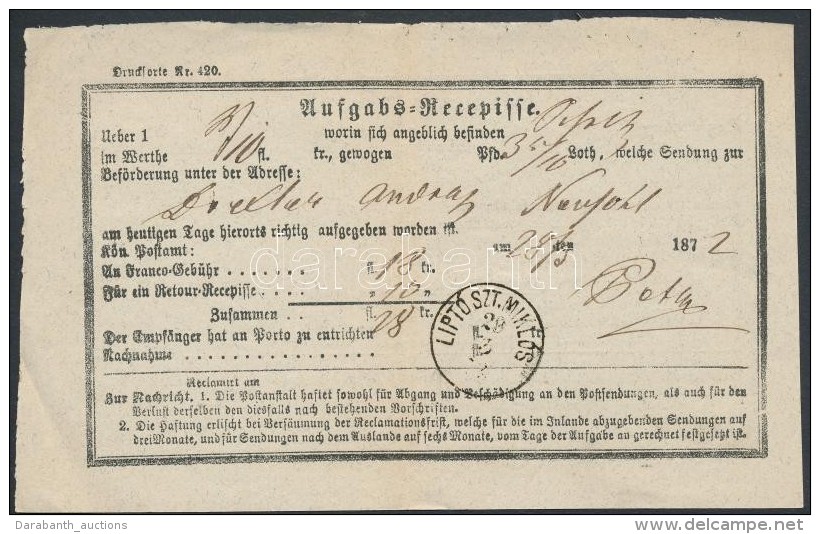 Drucksorte Nr. 420.
Aufgabs-Recepisse.
Ueber 1 worin sich angeblich befinden
im Werthe fl. kr., gewogen Pfd. Loth, welche Sendung zur
Beförderung unter der Adresse:
Neusohl
am heutigen Tage hierorts richtig aufgegeben worden ist.
Kön. Postamt: am 28/3 ten 1872
An Franco-Gebühr . . . . . . . fl. 18 kr.
Für ein Retour-Recepisse . . . " 10 "
Zusammen . . fl. 28 kr.
Der Empfänger hat an Porto zu entrichten
Nachnahme
LIPTÓ SZT. MIKLÓS
Reclamirt am
Zur Nachricht. 1. Die Postanstalt haftet sowohl für Abgang und Beschädigung an den Postsendungen, als auch für den
Verlust derselben den diesfalls nach bestehenden Vorschriften.
2. Die Haftung erlischt bei Versäumung der Reclamationsfrist, welche für die im Inlande abzugebenden Sendungen auf
drei Monate, und für Sendungen nach dem Auslande auf sechs Monate, vom Tage der Aufgabe an gerechnet festgesetzt ist.
darabanth
Darabanth_auctions
delcampe.net